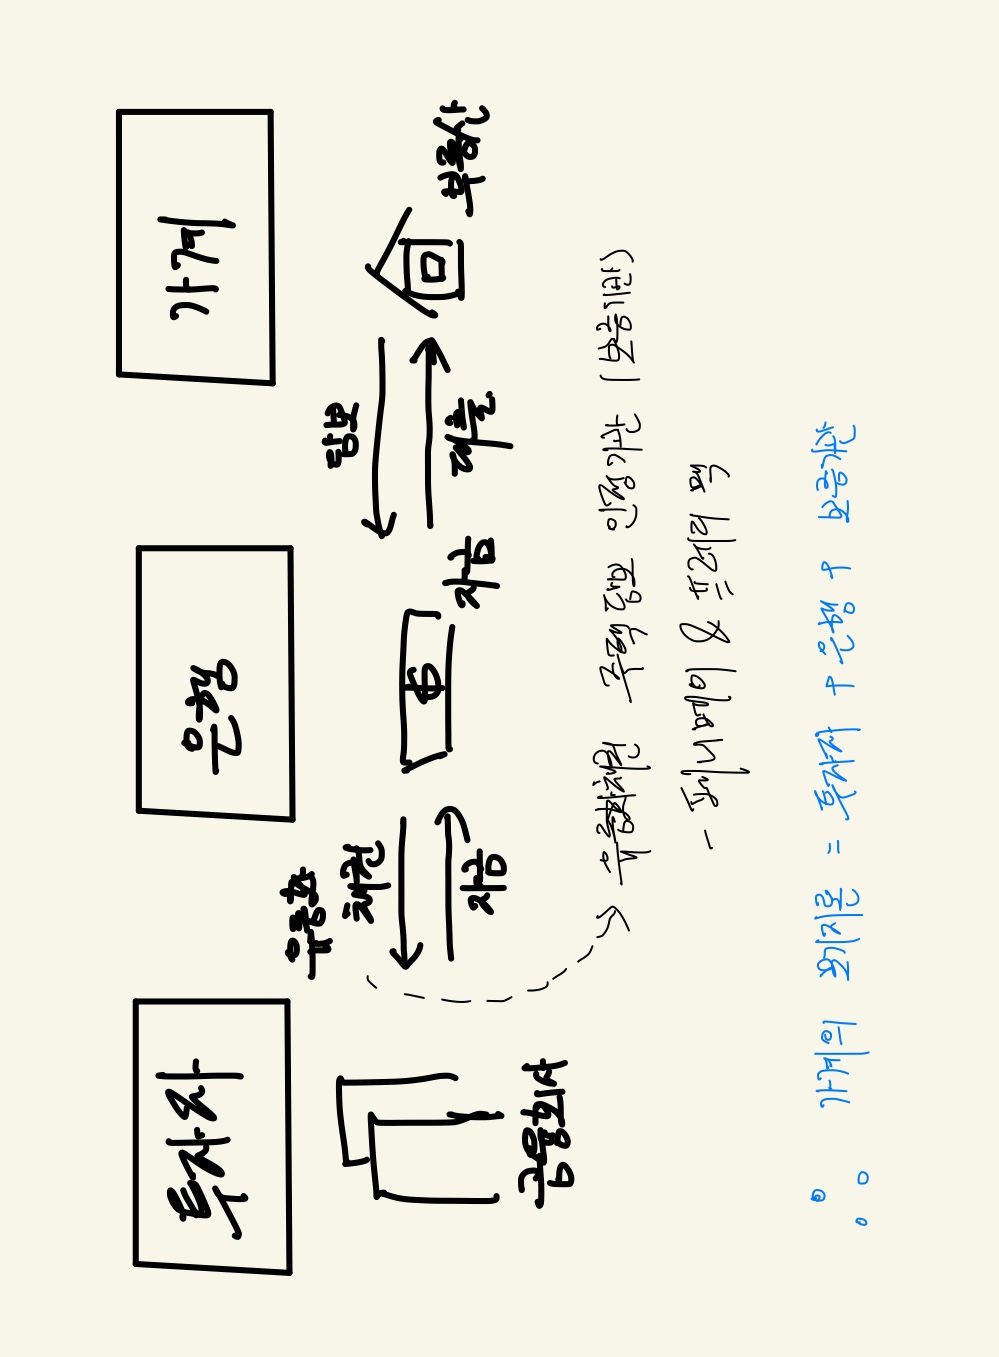 투자자
은행
가계
유동화
채권
자금
금융회사
담보
대출
자금
부동산
유동화채권 주택담보 인정기관 (보증기관)
- 패니메이 & 프레디 맥
∴ 가계의 모기지론 = 투자자 + 은행 + 보증기관